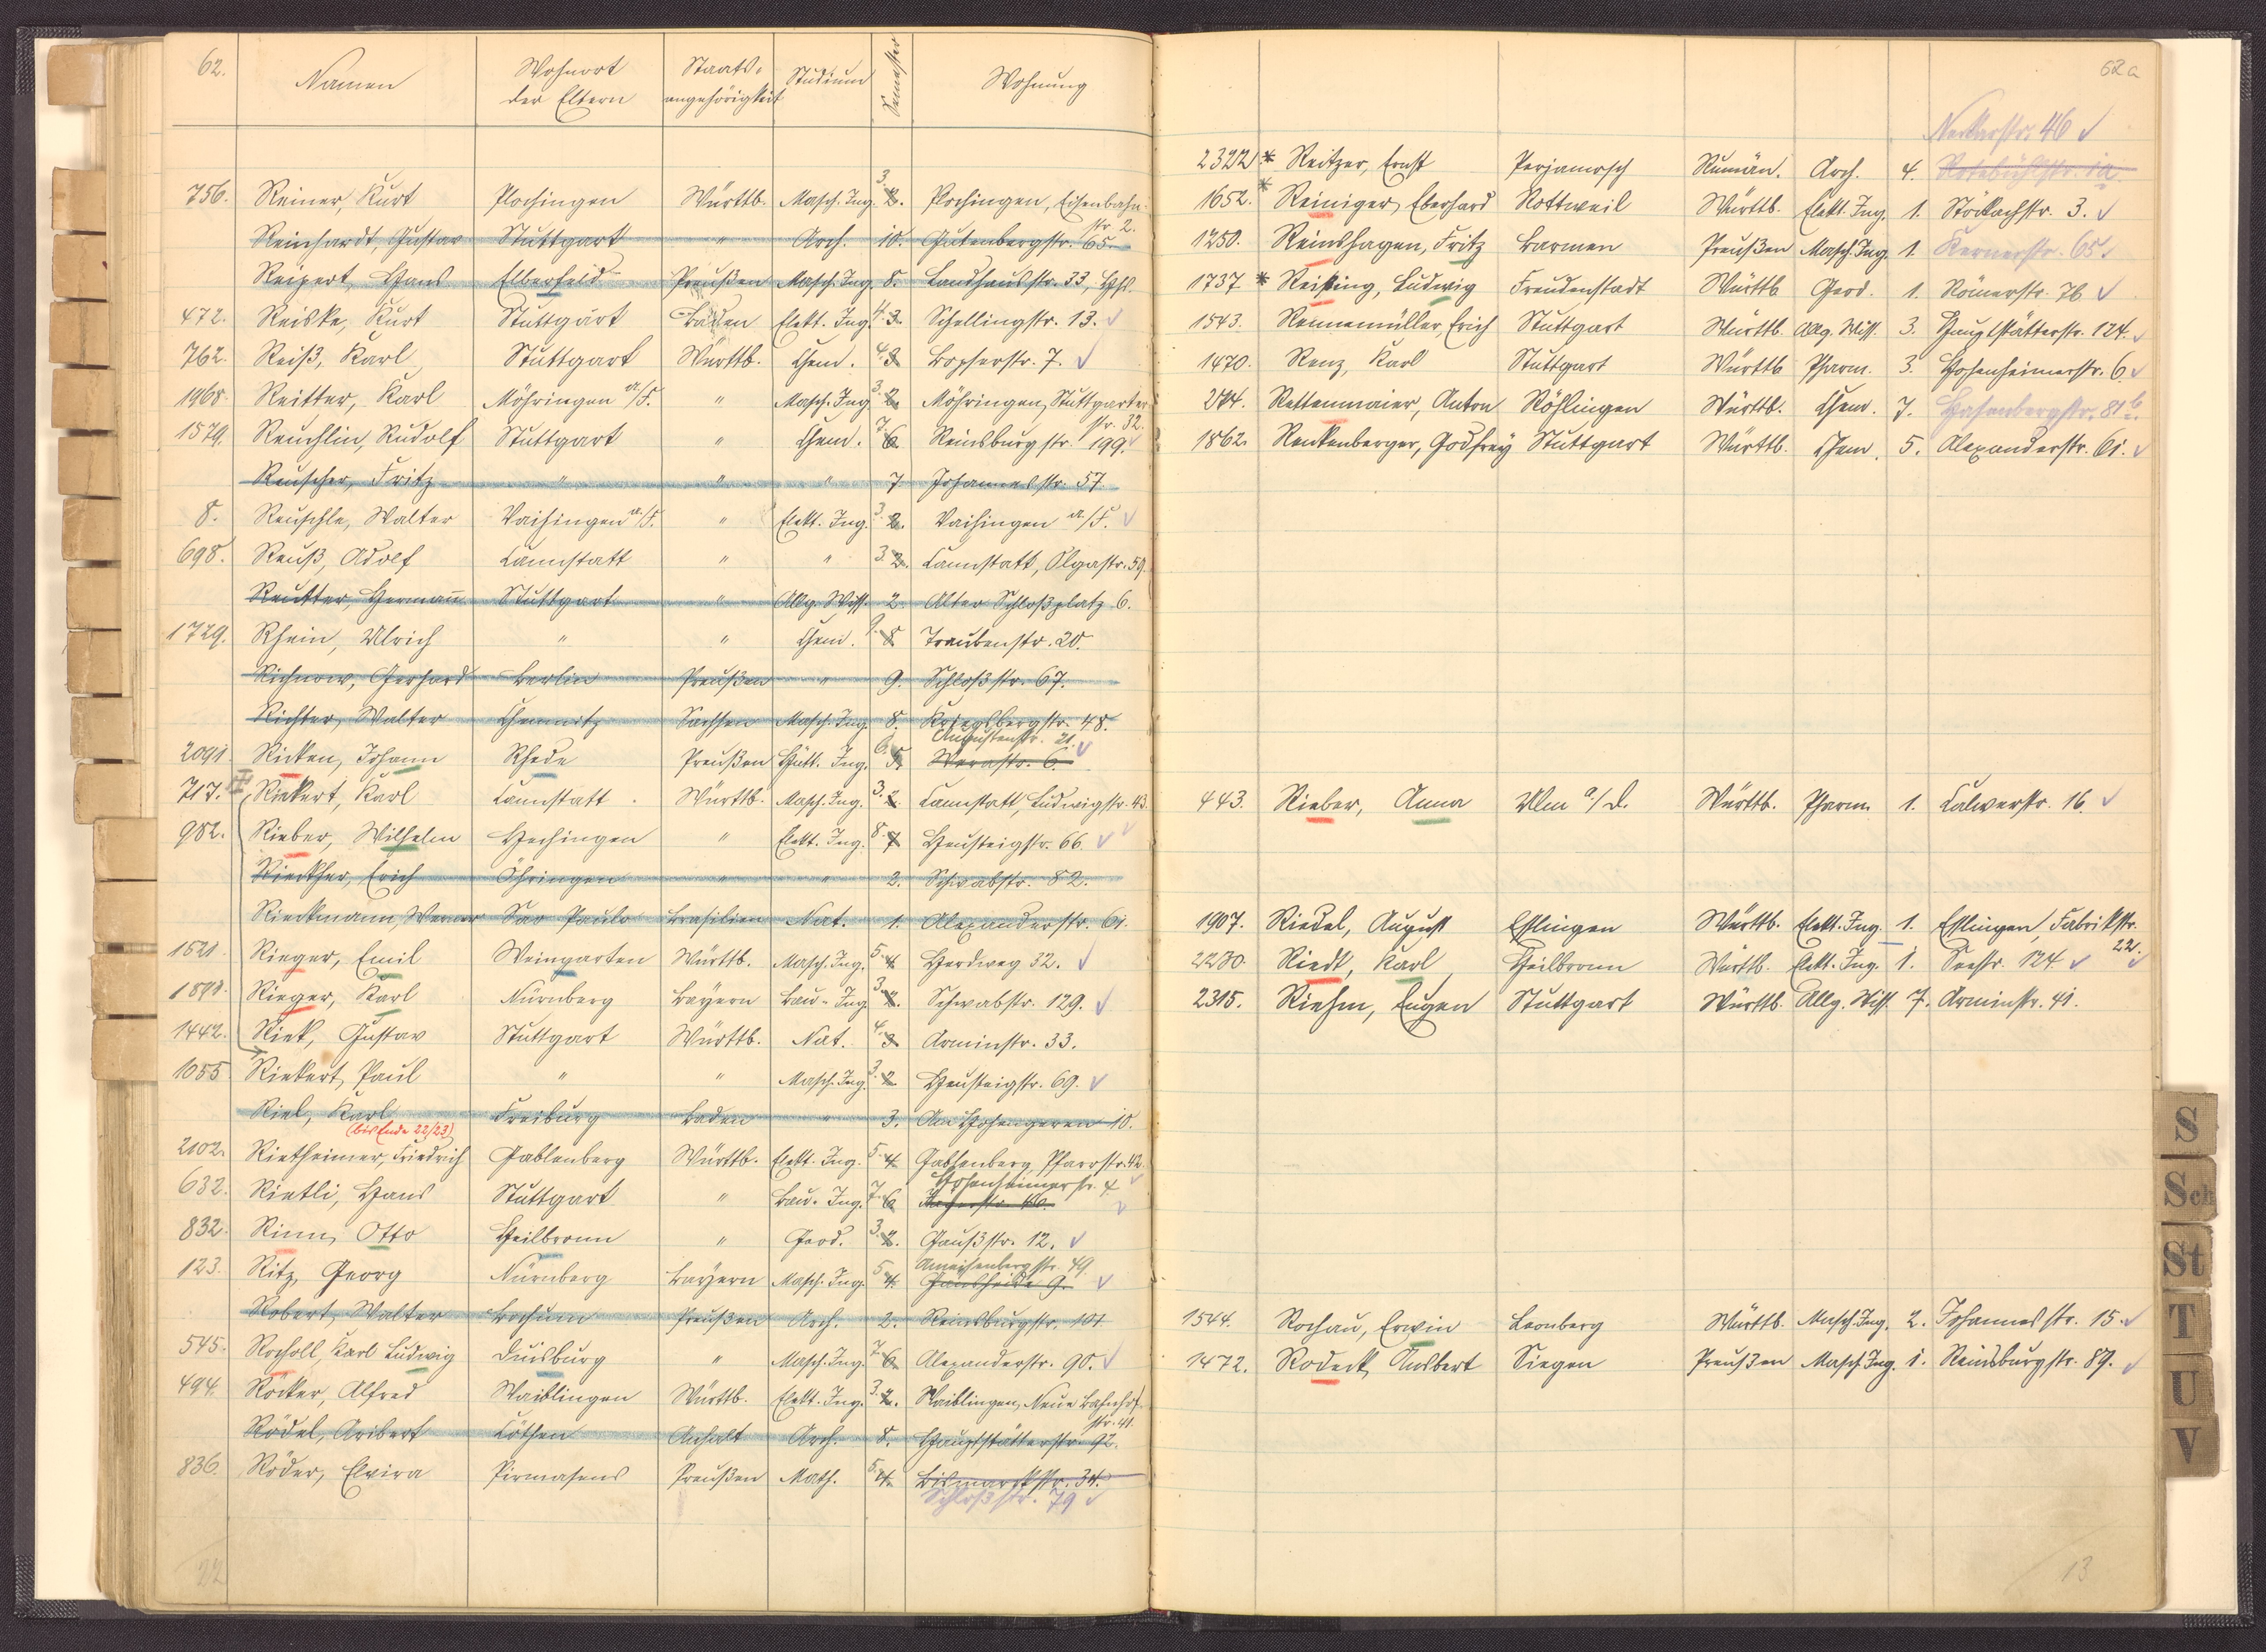 62.
Namen Wohnort der Eltern Staats-angehörigkeit Studium Semester Wohnung
756. Reiner, Kurt Plochingen Württb. Masch. Ing. 3. 2. Plochingen, Eisenbahn-
str. 2.
Reinhardt, Gustav Stuttgart " Arch. 10. Gutenbergstr. 65.
Reipert, Hans Elberfeld Preußen Masch. Ing. 8. Landhausstr. 33,
472. Reiske, Kurt Stuttgart Baden Elekt. Ing. 4. 3. Schellingstr. 13.
762. Reiß, Karl Stuttgart Württb. Chem. 4. 3. Bopserstr. 7.
1968. Reitter, Karl Möhringen a/F. " Masch. Ing. 3. 2. Möhringen, Stuttgarter
str. 32.
1579. Reuchlin, Rudolf Stuttgart " Chem. 7. 6. Reinsburgstr. 199.
Reuscher, Fritz " " " 7. Johannesstr. 57.
8. Reuschle, Walter Vaihingen a/F. " Elekt. Ing. 3. 2. Vaihingen a/F.
698. Reuß, Adolf Cannstatt " " 3. 2. Cannstatt, Olgastr. 59.
Reutter, Hermann Stuttgart " Allg. Wiss. 2. Alter Schloßplatz 6.
1729. Rhein, Ulrich " " Chem. 9. 8. Traubenstr. 20.
Richnow, Gerhard Berlin Preußen " 9. Schloßstr. 67.
Richter, Walter Chemnitz Sachsen Masch. Ing. 8. Kriegsbergstr. 48.
Augustenstr. 21.
2091. Ricken, Johann Rhede Preußen Hütt. Ing. 6. 5. Werastr. 6.
717. Riekert, Karl Cannstatt. Württb. Masch. Ing. 3. 2. Cannstatt, Ludwigstr. 43.
982. Rieber, Wilhelm Hechingen " Elekt. Ing. 8. 7. Heusteigstr. 66.
Rieckher, Erich Öhringen " " 2. Schwabstr. 82.
Rieckmann, Werner Sao Paulo Brasilien Nat. 1. Alexanderstr. 61.
1621. Rieger, Emil Weingarten Württb. Masch. Ing. 5. 4. Herdweg 32.
1891. Rieger, Karl Nürnberg Bayern Bau-Ing. 3. 2. Schwabstr. 129.
1442. Riek, Gustav Stuttgart Württb. Nat. 4. 3. Arminstr. 33.
1055. Riekert, Paul " " Masch. Ing. 3. 2. Heusteigstr. 69.
Riel, Karl Freiburg Baden " 3. Am Hohengeren 10.
(bis Ende 22/23)
2102. Rietheimer, Friedrich Gablenberg Württb. Elekt. Ing. 5. 4. Gablenberg, Pfarrstr. 42.
Hohenheimerstr. 4.
632. Rietli, Hans Stuttgart " Bau-Ing. 7. 6.
832. Rinn, Otto Heilbronn " Geod. 3. 2. Gaußstr. 12.
Ameisenbergstr. 49.
123. Ritz, Georg Nürnberg Bayern Masch. Ing. 5. 4. Gänsheide 9.
Robert, Walter Bochum Preußen Arch. 2. Reinsburgstr. 101
545. Rocholl, Karl Ludwig Duisburg " Masch. Ing. 7. 6. Alexanderstr. 90.
494. Röcker, Alfred Waiblingen Württb. Elekt. Ing. 3. 2. Waiblingen, Neue Bahnhof-
str. 41.
Rödel, Aribert Cöthen Anhalt Arch. 8. Hauptstätterstr. 92.
836. Röder, Elvira Pirmasens Preußen Math. 5. 4. Bismarckstr. 34.
Schloßstr. 79
22
62a
Neckarstr. 46
2322. * Reitzer, Ernst Perjamosch Rumän. Arch. 4. Rotebühlstr. 1a.
1652. * Reiniger, Eberhard Rottweil Württb. Elekt. Ing. 1. Stöckachstr. 3.
1250. Reinshagen, Fritz Barmen Preußen Masch. Ing. 1. Kernerstr. 65
1737. * Reißing, Ludwig Freudenstadt Württb. Geod. 1. Römerstr. 76
1543. Rennemüller, Erich Stuttgart Württb. Allg. Wiss. 3. Hauptstätterstr. 124.
1470. Renz, Karl Stuttgart Württb. Pharm. 3. Hohenheimerstr. 6.
Rettenmaier, Anton Röhlingen Württb. Chem. 7. Hasenbergstr. 81b.
1862. Renkenberger, Godfrey Stuttgart Württb. Chem. 5. Alexanderstr. 61.
443. Rieber, Anna Ulm a./D. Württb. Pharm. 1. Calwerstr. 16.
1907. Riedel, August Esslingen Württb. Elekt. Ing. 1. Esslingen, Fabrikstr.
22.
2230. Riedt, Karl Heilbronn Württb. Elekt. Ing. 1. Seestr. 124
2315. Riehm, Eugen Stuttgart Württb. Allg. Wiss. 7. Arminstr. 41.
1544. Rochau, Erwin Leonberg Württb. Masch. Ing. 2. Johannesstr. 15.
1472. Rodeck, Ansbert Siegen Preußen Masch. Ing. 1. Reinsburgstr. 89.
13
S
Sch
St
T
U
V